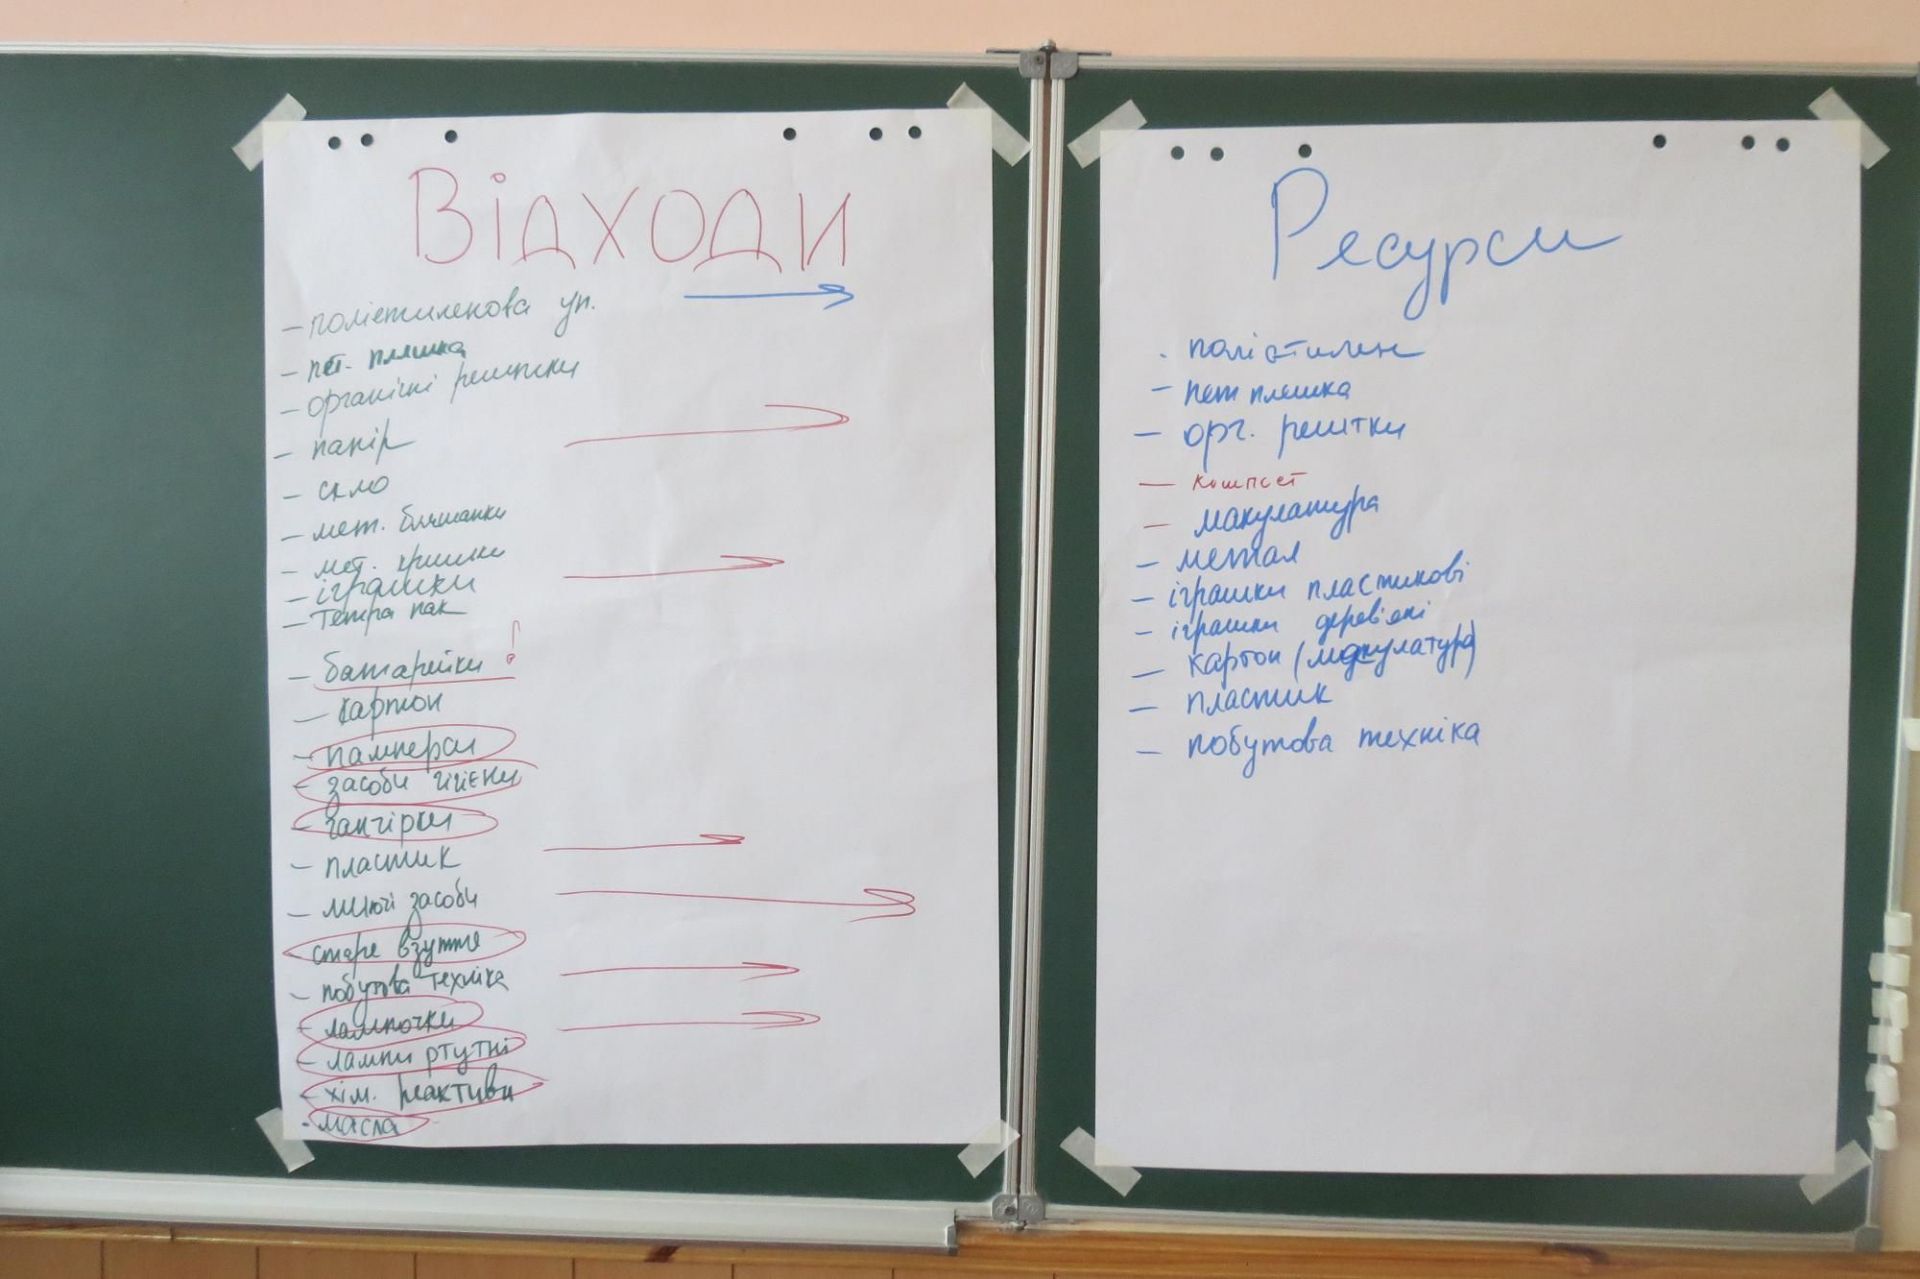 Відходи
– поліетиленова уп.
– пет. пляшка
– органічні рештки
– папір
– скло
– мет. бляшанки
– мет. кришки
– іграшки
– тетра пак
– батарейки !
– картон
– памперси
– засоби гігієни
– ганчірки
– пластик
– миючі засоби
– старе взуття
– побутова техніка
– лампочки
– лампи ртутні
– хім. реактиви
· масла
Ресурси
· поліетилен
– пет пляшка
– орг. рештки
– компост
– макулатура
– метал
– іграшки пластикові
– іграшки дерев'яні
– картон (макулатура)
– пластик
– побутова техніка